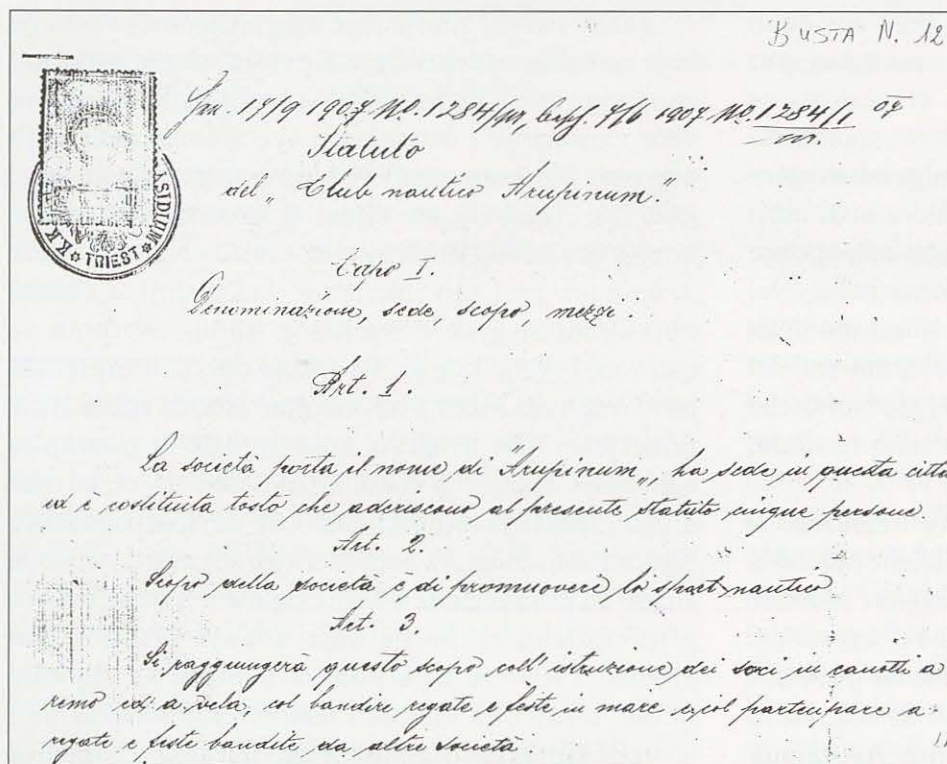 BUSTA N. 12
17/9 1907 No. 1284/ 7/6 1907 No. 1284/1 07
Statuto
del „Club nautico Arupinum."
TRIEST
Capo I.
Denominazione, sede, scopo, mezzi.
Art. 1.
La società porta il nome di „Arupinum„, ha sede in questa città
ed è costituita tosto che aderiscono al presente statuto cinque persone
Art. 2.
Scopo della società è di promuovere lo sport nautico
Art. 3.
Si raggiungerà questo scopo coll' istruzione dei soci in canotti a
remo ed a vela, col bandire regate e feste in mare e col partecipare a
regate e feste bandite da altre società.